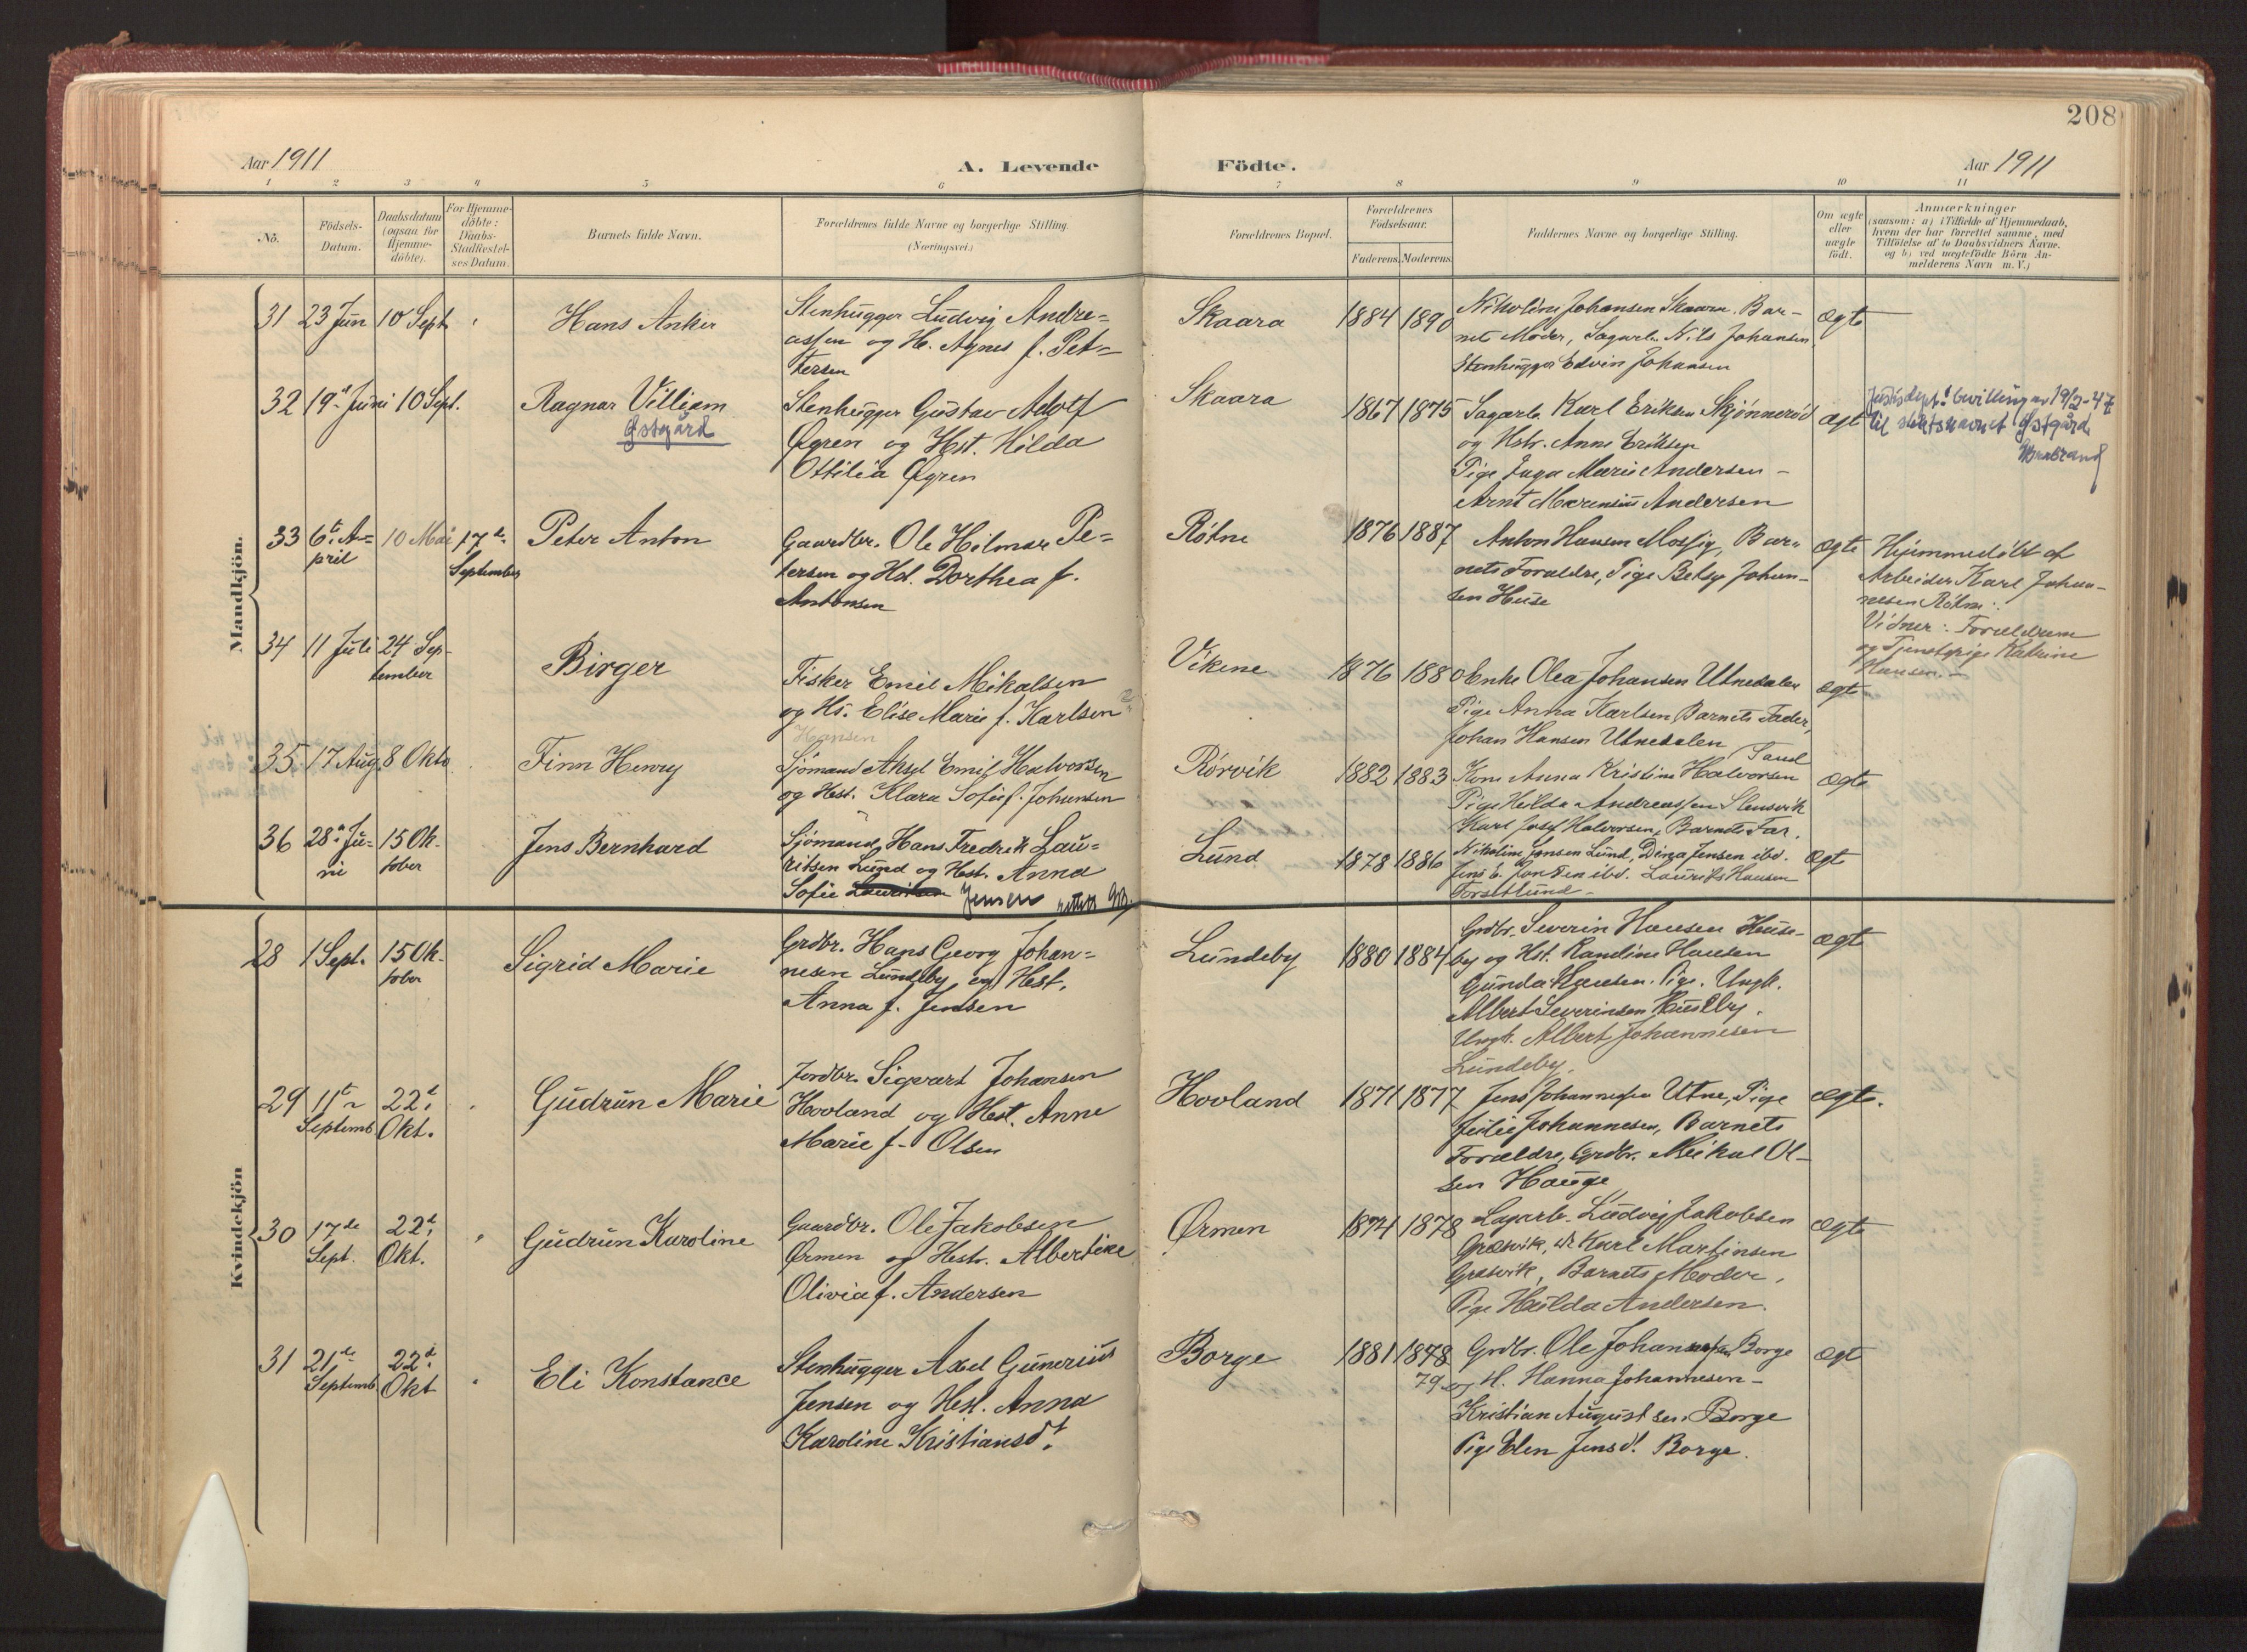 208
Aar 1911
A. Levende
Födte.
Aar 1911
1 2 3 4 5 6 7 8 9 10 11
No.
Födsels-
Datum.
Daabsdatum
(ogsaa for
Hjemme-
döbte).
For Hjemme-
döbte:
Daabs-
Stadfæstel-
ses Datum.
Barnets fulde Navn.
Forældrenes fulde Navne og borgerlige Stilling
(Næringsvei.)
Forældrenes Bopæl.
Forældrenes
Födselsaar.
Faderens. Moderens.
Faddernes Navne og borgerlige Stilling.
Om ægte
eller
uægte
födt.
Anmærkninger
(saasom: a) i Tilfælde af Hjemmedaab,
hvem der har forrettet samme, med
Tilföielse af to Daabsvidners Navne.
og b) ved uægtefödte Börn An-
melderens Navn m. V.)
Mandkjön.
31
23 Jun
10 Sept
Hans Anker
Stenhugger Ludvig Andre=
assen og H. Agnes f. Pet=
tersen
Skaara
1884
1890
Nikoline Johansen Skaara. Bar-
nets Moder, Sagarb. Nils Johansen
Stenhugger Edvin Johansen
ægte
32
19 Juni
10 Sept.
Ragnar Villiam
Østgård
Stenhugger Gustav Adolf
Øgren og Hst. Hilda
Ottilia Øgren
Skaara
1867
1875
Sagarb. Karl Eriksen Skjønnerød
og Hstr. Anne Eriksen
Pige Inga Marie Andersen -
Arnt Marensius Andersen
ægt
Justisdept! bevilling av 19/2-47
til slektsnavnet Østgård
33
6t A=
pril
10 Mai
17de
September
Peter Anton
Gaardbr. Ole Hilmar Pe=
tersen og Hst. Dorthea f.
Antonsen
Røtne
1876
1887
Anton Hansen Mossig, Bar-
nets Forældre, Pige Betsy Johan-
sen Huse
ægte
Hjemmedøbt af
Arbeider Karl Johan-
nesen Røtne.
Vidner: Forældrene
og Tjenestepige Katrine
Hansen. -
34
11 Juli
24 Sep-
tember
Birger
Fisker Emil Mikalsen
og Hs. Elise Marie f. Karlsen
Hansen
Vikene
1876
1880
Enke Olea Johansen Utnedalen
Pige Anna Karlsen Barnets Fader,
Johan Hansen Utnedalen
ægte
35
17 Aug
8 Okto
Finn Henry
Sjømand Aksel Emil Halvorsen
og Hst. Klara Sofie f. Johansen
Rørvik
1882
1883
Kone Anna Kristine Halvorsen
Pige Hilda Andreassen Slensvik
Karl Josef Halvorsen, Barnets Far.
ægte
36
28 Ju-
ni
15 Ok-
tober
Jens Bernhard
Sjømand Hans Fredrik Lau=
ritsen Lund og Hst. Anna
Sofie Lauritsen Jensen rettet
Lund
1878
1886
Nikoline Jensen Lund, Dina Jensen ibd.
Jens E. Jensen ibd. Laurits Hansen
ægt
Kvindekjön
28
1 Sept.
15 Ok-
tober
Sigrid Marie
Grdbr. Hans Georg Johan=
nesen Lundeby og Hest.
Anna f. Jensen
Lundeby
1880
1884
Grdbr. Severin Hansen Huse-
by og Hst. Randine Hansen
Gunda Hansen. Pige. Ungk.
Albert Severinsen Huseby.
Ungk. Albert Johannesen
Lundeby.
ægte
29
11te
Septemb
22d
Okt.
Gudrun Marie
Jordbr. Sigvart Johansen
Hovland og Hest. Anne
Marie f. Olsen
Hovland
1871
1877
Jens Johannesen Utne, Pige
Julie Johannesen, Barnets
Forældre, Grdbr. Mikal Ol-
sen Hauge
ægte.
30
17de
Sept.
22d
Okt.
Gudrun Karoline
Gaardbr. Ole Jakobsen
Ørmen og Hestr. Albertine
Olivia f. Andersen
Ørmen
1874
1878
Sagarb. Ludvig Jakobsen
Græsvik, do Karl Martinsen
Græsvik, Barnets Moder,
Pige Hulda Andersen.
ægte
31
21de
Septemb
22d
Okt
Eli Konstance
Stenhugger Axel Gunerius
Jensen og Hest. Anna
Karoline Kristiansdt.
Borge
1881
1878
79
Grdbr. Ole Johannesen Borge
og H. Hanna Johannesen -
Kristian August sen. Borge
Pige Elen Jensdt. Borge.
ægt